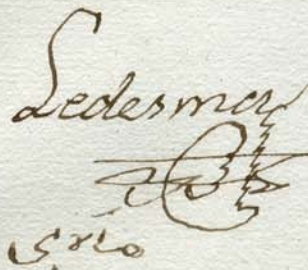 Ledesma
srio